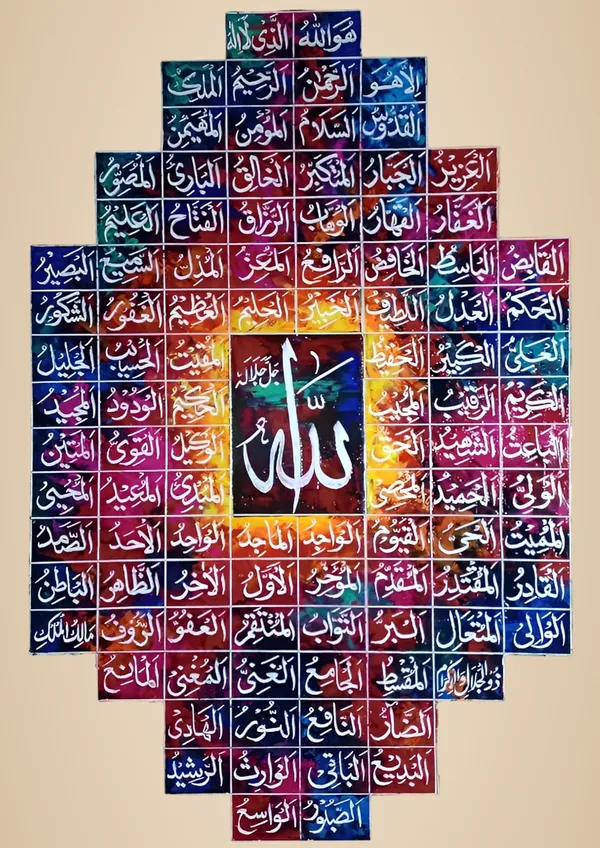 هُوَاللهُ الَّذِی لَا اِلٰهَ
اِلَّا هُوَ اَلرَّحْمٰنُ اَلرَّحِيمُ اَلْمَلِكُ
اَلْقُدُّوسُ اَلسَّلَامُ اَلْمُؤْمِنُ اَلْمُهَيْمِنُ
اَلْعَزِيزُ اَلْجَبَّارُ اَلْمُتَكَبِّرُ اَلْخَالِقُ اَلْبَارِئُ اَلْمُصَوِّرُ
اَلْغَفَّارُ اَلْقَهَّارُ اَلْوَهَّابُ اَلرَّزَّاقُ اَلْفَتَّاحُ اَلْعَلِيمُ
اَلْقَابِضُ اَلْبَاسِطُ اَلْخَافِضُ اَلرَّافِعُ اَلْمُعِزُّ اَلْمُذِلُّ اَلسَّمِيعُ اَلْبَصِيرُ
اَلْحَكَمُ اَلْعَدْلُ اَللَّطِيفُ اَلْخَبِيرُ اَلْحَلِيمُ اَلْعَظِيمُ اَلْغَفُورُ اَلشَّكُورُ
اَلْعَلِیُّ اَلْكَبِيرُ اَلْحَفِيظُ اَلْمُقِيتُ اَلْحَسِيبُ اَلْجَلِيلُ
اَلْكَرِيمُ اَلرَّقِيبُ اَلْمُجِيبُ اَلْحَكِيمُ اَلْوَدُودُ اَلْمَجِيدُ
اَلْبَاعِثُ اَلشَّهِيدُ اَلْحَقُّ اَلْوَكِيلُ اَلْقَوِیُّ اَلْمَتِينُ
اَلْوَلِیُّ اَلْحَمِيدُ اَلْمُحْصِی اَلْمُبْدِئُ اَلْمُعِيدُ اَلْمُحْیِی
جَلَّ جَلَالُهُ
الله
اَلْمُمِيتُ اَلْحَیُّ اَلْقَيُّومُ اَلْوَاجِدُ اَلْمَاجِدُ اَلْوَاحِدُ اَلْاَحَدُ اَلصَّمَدُ
اَلْقَادِرُ اَلْمُقْتَدِرُ اَلْمُقَدِّمُ اَلْمُؤَخِّرُ اَلْاَوَّلُ اَلْآخِرُ اَلظَّاهِرُ اَلْبَاطِنُ
اَلْوَالِی اَلْمُتَعَالُ اَلْبَرُّ اَلتَّوَّابُ اَلْمُنْتَقِمُ اَلْعَفُوُّ اَلرَّؤُفُ مَالِكُ الْمُلْكُ
ذُوالْجَلَالِ وَالْاِكْرَامِ اَلْمُقْسِطُ اَلْجَامِعُ اَلْغَنِیُّ اَلْمُغْنِی اَلْمَانِعُ
اَلضَّارُّ اَلنَّافِعُ اَلنُّورُ اَلْهَادِی
اَلْبَدِيعُ اَلْبَاقِی اَلْوَارِثُ اَلرَّشِيدُ
اَلصَّبُورُ اَلْوَاسِعُ